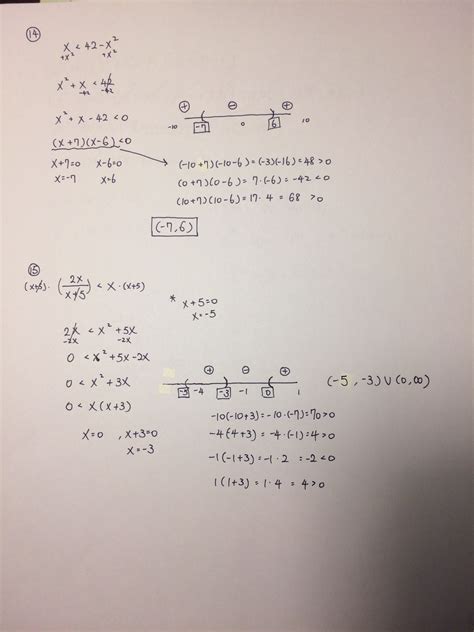 ⑭
x < 42 - x²
+x² +x²
x² + x < 42
-42 -42
x² + x - 42 < 0
(x+7)(x-6) < 0
x+7=0 x-6=0
x=-7 x=6
⊕ ⊖ ⊕
-10 -7 0 6 10
(-10+7)(-10-6) = (-3)(-16) = 48 > 0
(0+7)(0-6) = 7·(-6) = -42 < 0
(10+7)(10-6) = 17·4 = 68 > 0
(-7, 6)
⑮
(x+5)·(2x/x+5) < x·(x+5)
* x+5=0
x=-5
2x < x² + 5x
-2x -2x
0 < x² + 5x - 2x
0 < x² + 3x
0 < x(x+3)
x=0 , x+3=0
x=-3
⊕ ⊖ ⊕
-5 -4 -3 -1 0 1
(-5, -3) ∪ (0, ∞)
-10(-10+3) = -10·(-7) = 70 > 0
-4(-4+3) = -4·(-1) = 4 > 0
-1(-1+3) = -1·2 = -2 < 0
1(1+3) = 1·4 = 4 > 0